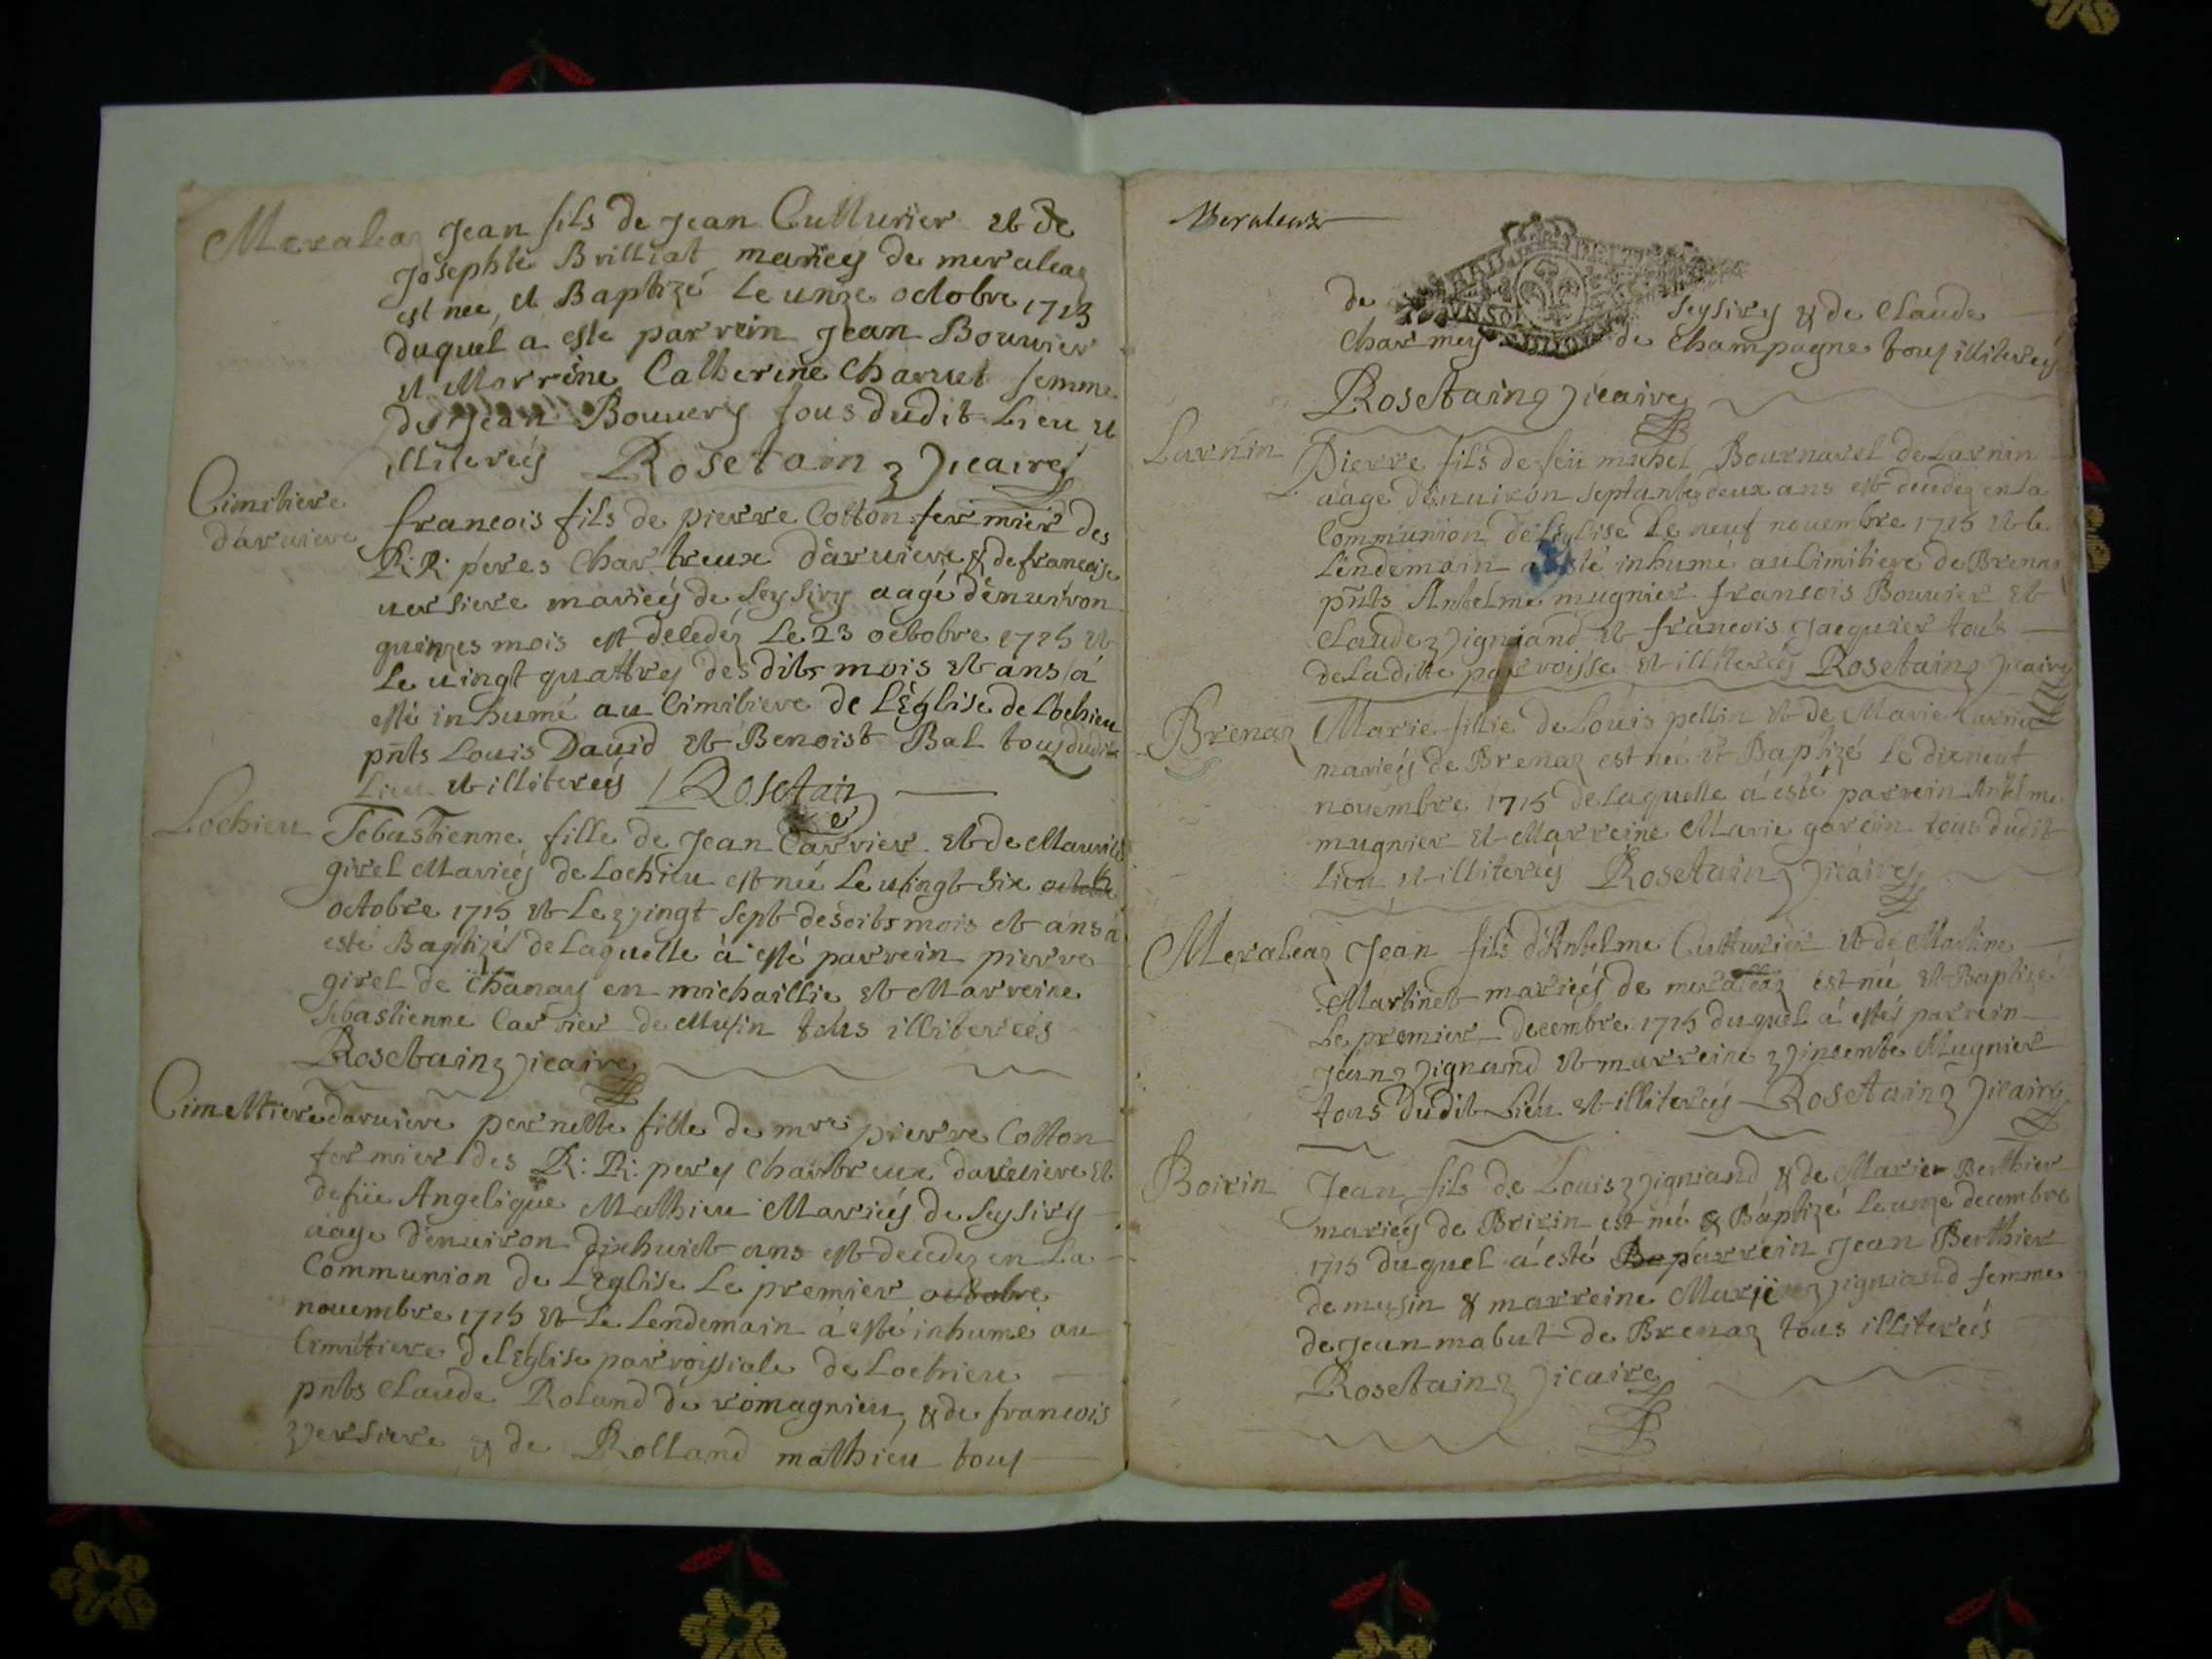 Meraleaz Jean fils de Jean Cutturier et de
Josephte Brilliat mariey de meraleaz
est nee, et Baptizé le unze octobre 1715
duquel a este parrein Jean Bouvier
et Marrine Catherine Charvet femme
de Jean Bouvery tous dudit Lieu et
illitereés Rosetain Vicaire
Cimitiere
d'arviere
francois fils de pierre Cotton fermier des
R: R: peres Chartreux d'arviere & de francoise
versiere marieés de seysiry aagé d'environ
quinzes mois est decedéz le 23 octobre 1715 et
le vingt quattrej desdits mois et ans a
esté inhumé au Cimitiere de l'Eglise de Lochieu
pnts Louis David et Benoist Bal tous dudit
Lieu et illitereés Rosetain
Lochieu Sebastienne fille de Jean Carrier et de Maurice
girel Marieés de Lochieu est neé le vingt six
octobre 1715 et le vingt sept desdits mois et ans á
esté Baptizé de laquelle á esté parrein pierre
girel de Chanay en michaillie et Marreine
sebastienne Carrier de Musin tous illitereés
Rosetain Vicaire
Cimettiere darviere pernette fille de mre pierre Cotton
fermier des R: R: perej Chartreux d'arviere et
de füe Angelique Mathieu Marieés de seysiry
aage d'environ dixhuict ans est decedez en la
Communion de L'Eglise le premier octobre
novembre 1715 et le lendemain á esté inhumé au
Cimittiere de l'Eglise parroissiale de Lochieu
pnts Claude Roland de romagnieu, & de francois
Versiere & de Rolland mathieu tous
Meraleaz
de seysiry & de Claude
Charmey de Champagne tous illitereés
Rosetain Vicaire
Larnin Pierre fils de feü michel Bournarel de Larnin
aage d'environ septante deux ans est decedez en la
Communion de l'Eglise le neuf novembre 1715 et le
lendemain a esté inhumé au Cimitiere de Brenaz
pnts Antelme mugnier francois Bouvier et
Claude Vigniand et francois Jacquier tous
de la ditte parroisse et illitereés Rosetain Vicaire
Brenaz Marie fillie de Louis pellin et de Marie
marieés de Brenaz est neé et Baptizé le dixneuf
novembre 1715 de laquelle á esté parrein Antelme
mugnier et Marreine Marie garcin tous dudit
lieu et illitereés Rosetain Vicaire
Meraleaz Jean fils d'Antelme Cutturier et de Martine
Martinet marieés de meraleaz est né et Baptizé
le premier decembre 1715 duquel á estés parrein
Jean Vignand et marreine Vincente Mugnier
tous dudit Lieu et illitereés Rosetain Vicaire
Boirin Jean fils de Louis Vigniand & de Marie Berthier
marieés de Boirin est né & Baptizé le unze decembre
1715 duquel á esté Ba parrein Jean Berthier
de musin & marreine Marie Vigniand femme
de Jean mabut de Brenaz tous illitereés
Rosetain Vicaire